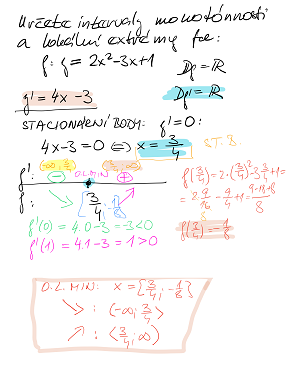 Určete intervaly monotónnosti
a lokální extrémy fce:
f: y = 2x²-3x+1
Df = ℝ
y' = 4x - 3
Df' = ℝ
STACIONÁRNÍ BODY: y' = 0:
4x-3 = 0 ⇔ x = 3/4
ST. B.
(-∞; 3/4) O.L. MIN (3/4; ∞)
f': ⊖ ⊕
f: ↘ [3/4; -1/8] ↗
f(3/4) = 2·(3/4)²-3·3/4+1=
= 2·9/16 - 9/4 + 1 = (9-18+8)/8
f(3/4) = -1/8
f'(0) = 4·0-3 = -3<0
f'(1) = 4·1-3 = 1>0
O.L. MIN: x = [3/4; -1/8]
↘ : (-∞; 3/4>
↗ : <3/4; ∞)